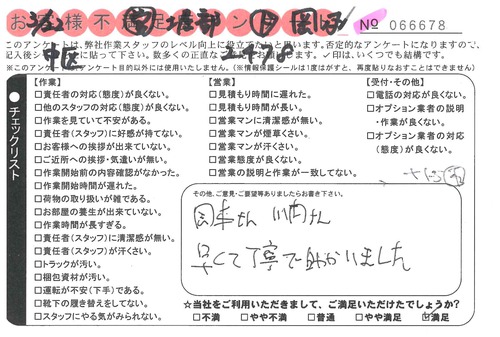 お客様不満足アンケート
№ 066678
このアンケートは、弊社作業スタッフのレベル向上に役立てたいと思います。否定的なアンケートになりますので、
記入後シールを上に貼って下さい。数多くの正直なご意見をお待ちしております。✓印は、いくつでも結構です。
※このアンケートは、アンケート目的以外には使用いたしません。(※情報保護シールは1度はがすと、再度貼りなおすことはできません)
中区
●チェックリスト
【作業】
□責任者の対応(態度)が良くない。
□他のスタッフの対応(態度)が良くない。
□作業を見ていて不安がある。
□責任者(スタッフ)に好感が持てない。
□お客様への挨拶が出来ていない。
□ご近所への挨拶・気遣いが無い。
□作業開始前の内容確認がなかった。
□作業開始時間が遅れた。
□荷物の取り扱いが雑である。
□お部屋の養生が出来ていない。
□作業時間が長すぎる。
□責任者(スタッフ)に清潔感が無い。
□責任者(スタッフ)が汗くさい。
□トラックが汚い。
□梱包資材が汚い。
□運転が不安(下手)である。
□靴下の履き替えをしてない。
□スタッフにやる気がみられない。
【営業】
□見積もり時間に遅れた。
□見積もり時間が長い。
□営業マンに清潔感が無い。
□営業マンが煙草くさい。
□営業マンが汗くさい。
□営業態度が良くない。
□営業の説明と作業が一致してない。
【受付・その他】
□電話の対応が良くない。
□オプション業者の説明
・作業が良くない。
□オプション業者の対応
(態度)が良くない。
その他、ご意見・ご要望等ありましたらお書き下さい。
岡本さん 川内さん
早くて丁寧で助かりました
☆当社をご利用いただきまして、ご満足いただけたでしょうか?
□不満 □やや不満 □普通 □やや満足 ☑満足